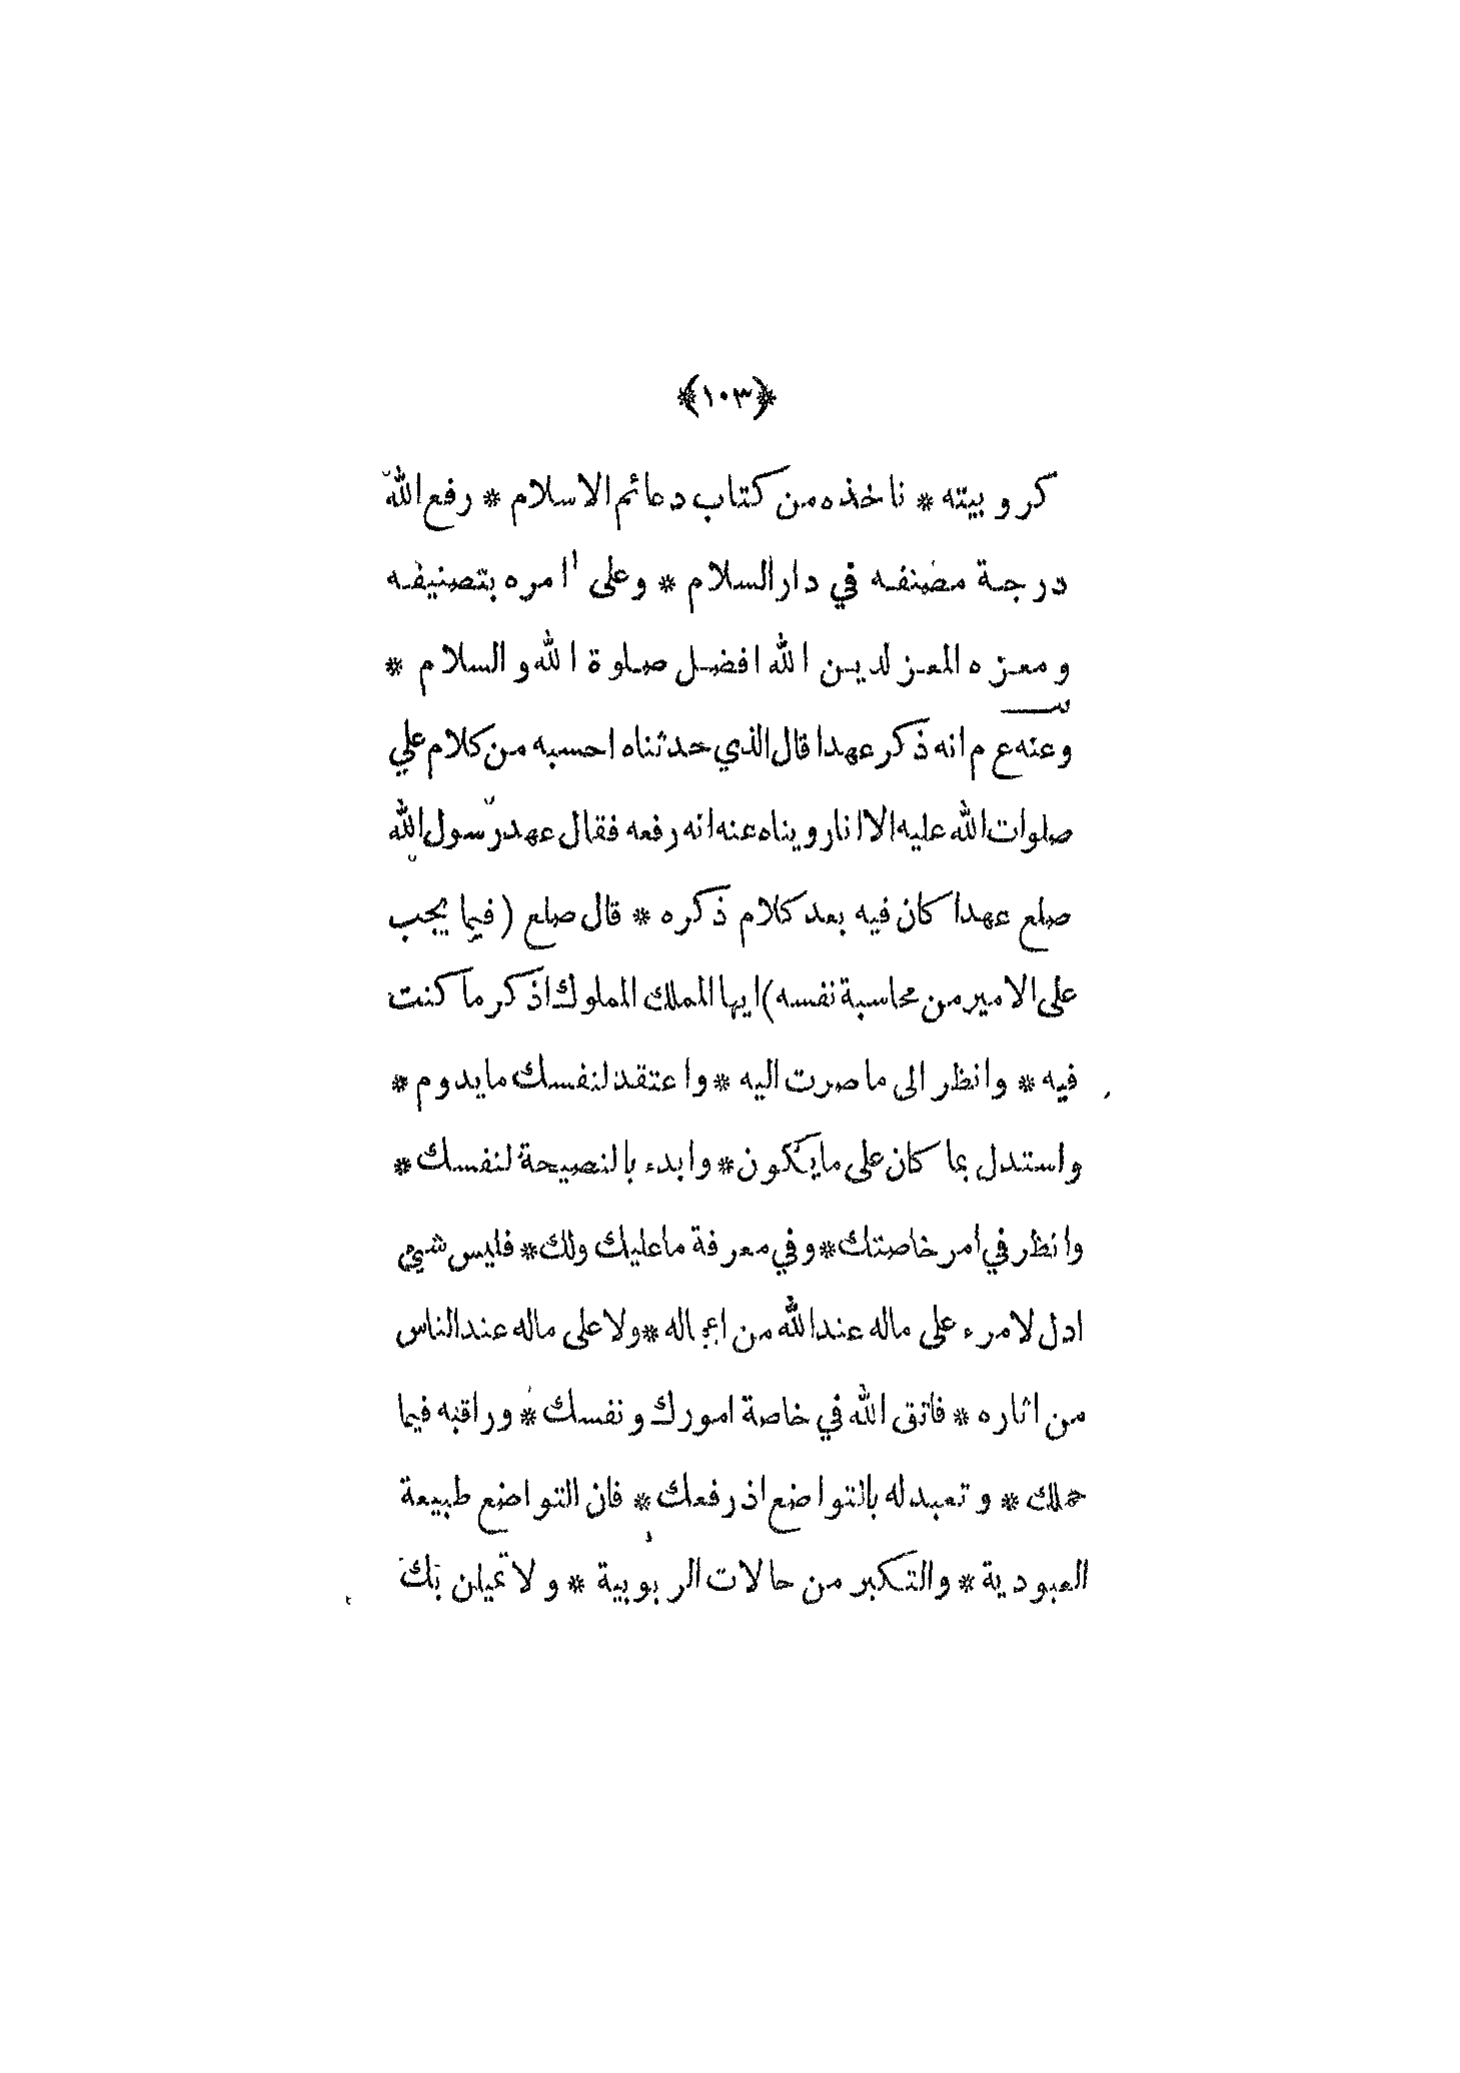 ﴿١٠٣﴾
كروبيته * ناخذه من كتاب دعائم الاسلام * رفع الله
درجة مصنفه في دار السلام * وعلى امره بتصنيفه
ومعزه المعز لدين الله افضل صلوة الله والسلام *
وعنه ع م انه ذكر عهدا قال الذي حدثناه احسبه من كلام علي
صلوات الله عليه الا انا روينا عنه انه رفعه فقال عهد رسول الله
صلع عهدا كان فيه بعد كلام ذكره * قال صلع (فيما يجب
على الامير من محاسبة نفسه) ايها الملك المملوك اذكر ما كنت
فيه * وانظر الى ما صرت اليه * واعتقد لنفسك ما يدوم *
واستدل بما كان على ما يكون * وابدء بالنصيحة لنفسك *
وانظر في امر خاصتك * وفي معرفة ما عليك ولك * فليس شيء
ادل لامرء على ماله عند الله من اعماله * ولا على ماله عند الناس
من اثاره * فاتق الله في خاصة امورك ونفسك * وراقبه فيما
حملك * وتعبد له بالتواضع اذ رفعك * فان التواضع طبيعة
العبودية * والتكبر من حالات الربوبية * ولا تميلن بك